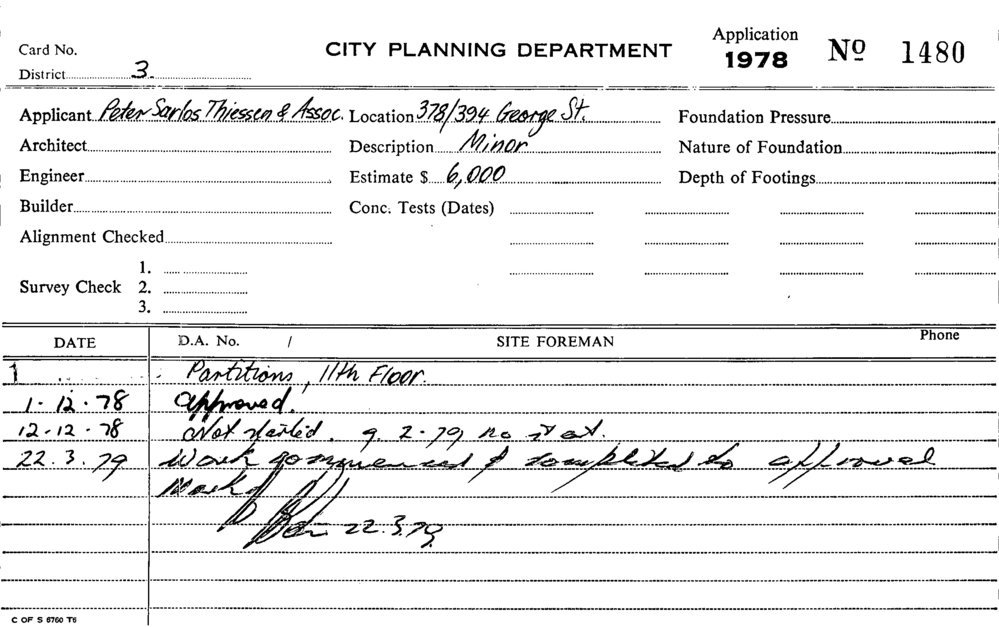 Card No.
CITY PLANNING DEPARTMENT
Application
1978 Nº 1480
District 3.
Applicant Peter Sarlos Thiessen & Assoc. Location 378/394 George St. Foundation Pressure
Architect Description Minor Nature of Foundation
Engineer Estimate $ 6,000 Depth of Footings
Builder Conc. Tests (Dates)
Alignment Checked
1.
Survey Check 2.
3.
DATE D.A. No. / SITE FOREMAN Phone
1 Partitions, 11th Floor.
1.12.78 Approved.
12.12.78 Not started. 9.2.79 no start.
22.3.79 Work commenced & completed to approval
22.3.79
C OF S 6760 T6